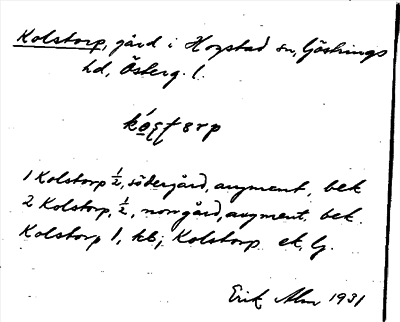 Kolstorp, gård i Hogstad sn, Göstrings
hd, Österg. l.
1 Kolstorp ½, södergård, augment, bek
2 Kolstorp, ½, norrgård, augment, bek.
Kolstorp 1, kb; Kolstorp ek, Lj.
Erik Alm 1931